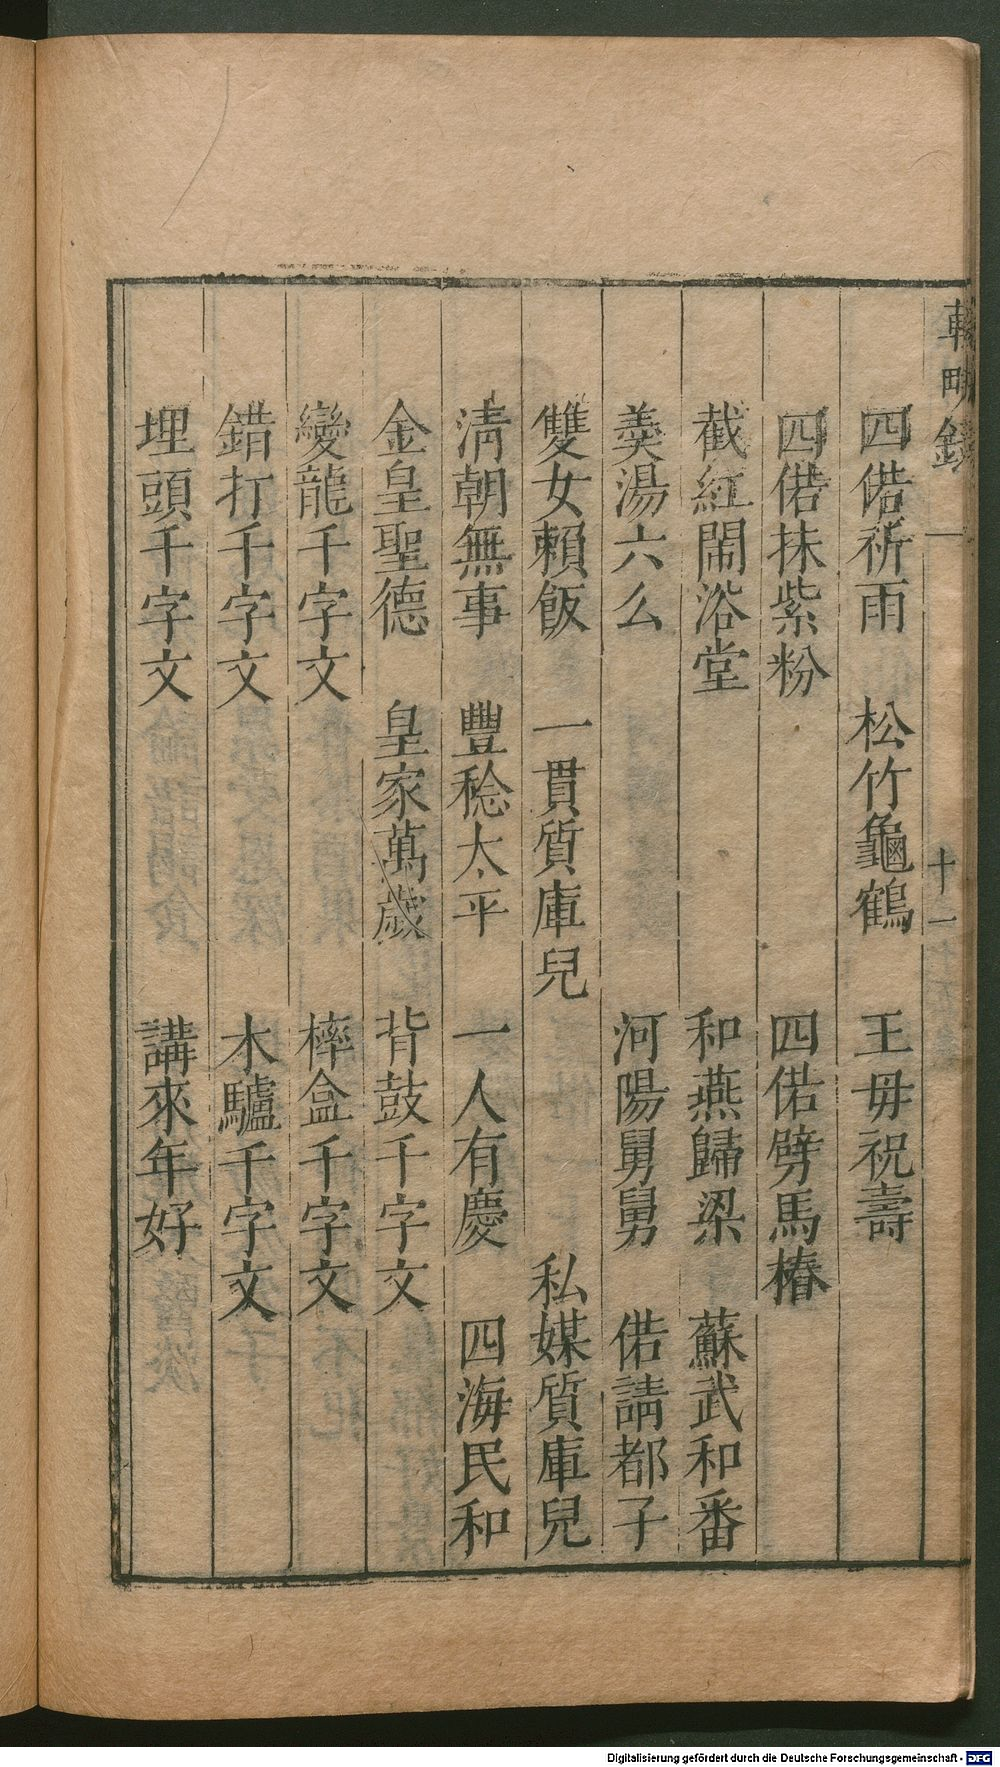 輟畊錄 一 十一
四偌祈雨 松竹龜鶴 王毋祝壽
四偌抹紫粉 四偌劈馬樁
截紅鬧浴堂 和燕歸梁 蘇武和番
羹湯六么 河陽舅舅 偌請都子
雙女賴飯 一貫質庫兒 私媒質庫兒
清朝無事 豐稔太平 一人有慶 四海民和
金皇聖德 皇家萬歲 背鼓千字文
變龍千字文 摔盒千字文
錯打千字文 木驢千字文
埋頭千字文 講來年好
Digitalisierung gefördert durch die Deutsche Forschungsgemeinschaft - DFG